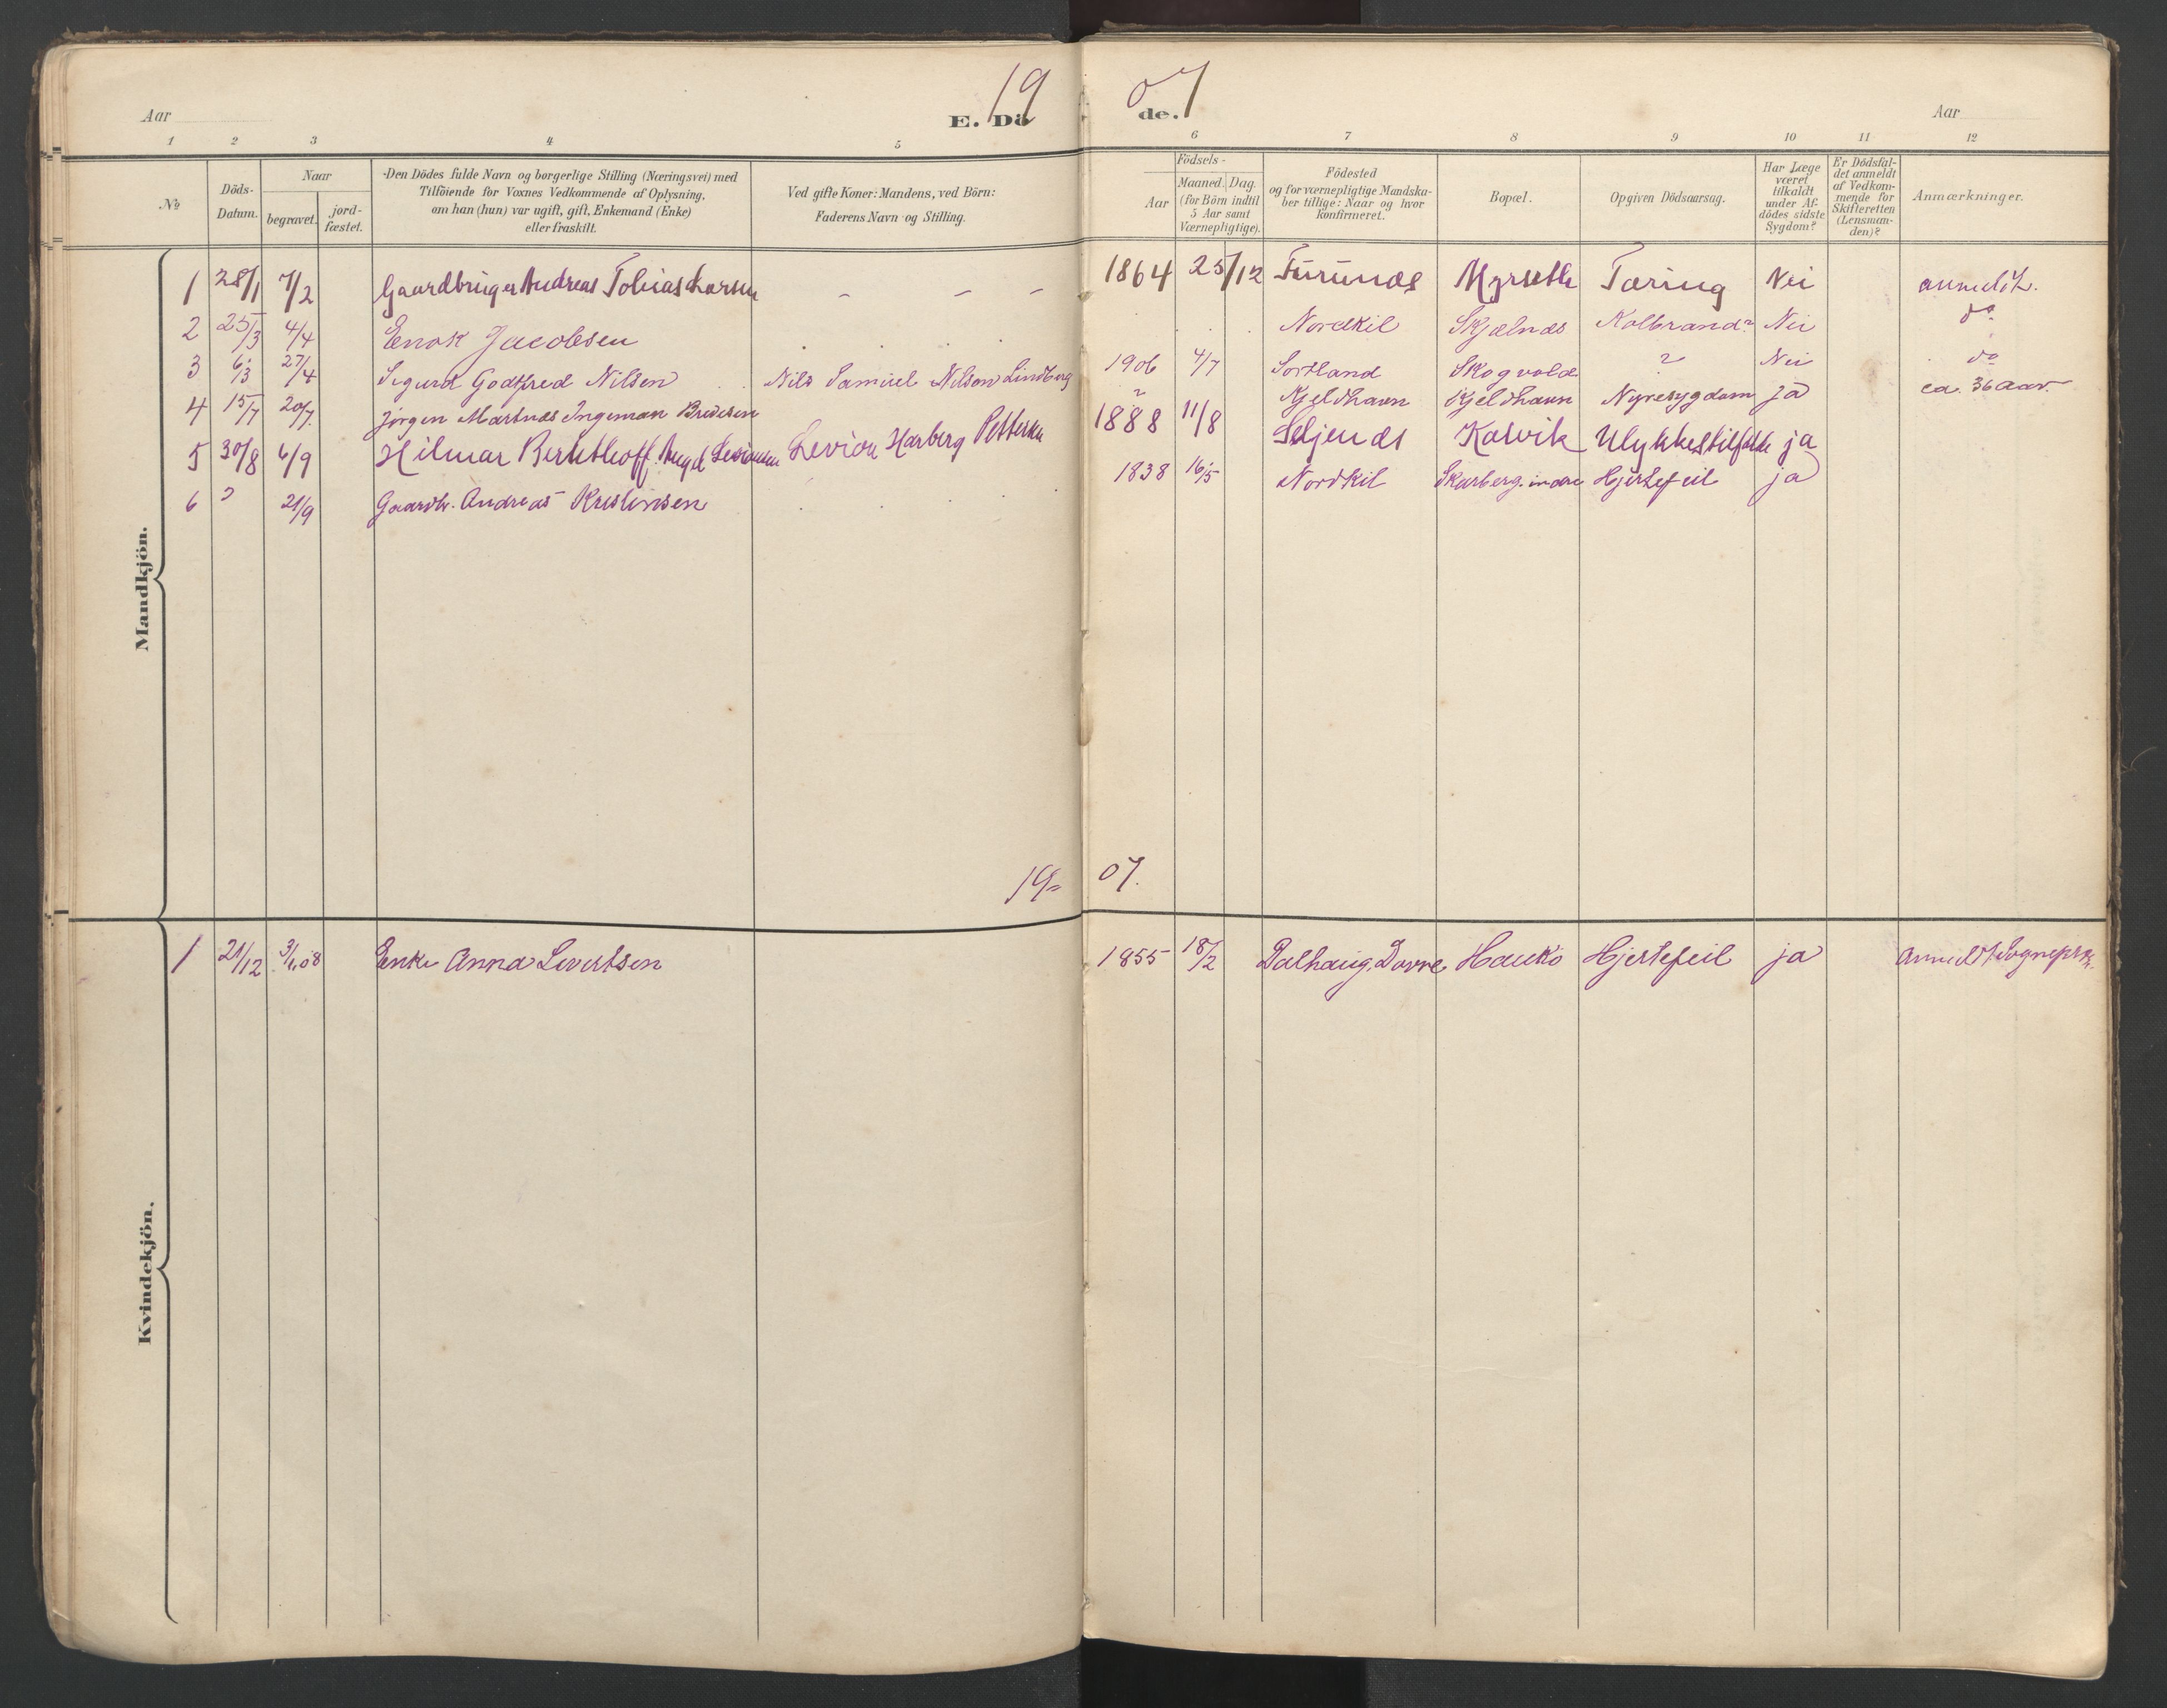 1907
Aar E. Döde. Aar
1 2 3 4 5 6 7 8 9 10 11 12
№ Döds-Datum. Naar begravet. jord-fæstet. Den Dödes fulde Navn og borgerlige Stilling (Næringsvei) med Tilföiende for Voxnes Vedkommende af Oplysning, om han (hun) var ugift, gift, Enkemand (Enke) eller fraskilt. Ved gifte Koner: Mandens, ved Börn: Faderens Navn og Stilling. Födsels- Aar Maaned. Dag. (for Börn indtil 5 Aar samt Værnepligtige). Födested og for værnepligtige Mandska-ber tillige: Naar og hvor Konfirmeret. Bopæl. Opgiven Dödsaarsag. Har Læge været tilkaldt under Af-dödes sidste Sygdom? Er Dödsfal-det anmeldt af Vedkom-mende for Skifteretten (Lensman-den)? Anmærkninger.
Mandkjön.
1 28/1 7/2 Gaardbruger Andreas Tobias Larsen - - - 1864 25/12 Furunæs Myrseth Tæring Nei anmeldt.
2 25/3 4/4 Enok Jacobsen . . . Nordkil Skjælnæs Kolbrand? Nei do.
3 6/3 27/4 Sigurd Godtfred Nilsen Nils Samuel Nilsen Lindberg 1906 4/7 Sortland Skogvold ? Nei do
4 15/7 20/7. Jørgen Martnæs Ingeman Bredesen ? Kjeldhavn Kjeldhavn Nyresygdom ja ca. 36 aar
5 30/8 6/9 Hilmar Berhthoff Augd Levionsen Levion Harberg Pettersen 1888 11/8 Seljenæs Kalvik Ulykkestilfælde ja
6 ? 21/9 Gaardbr. Andreas Kristensen . . . 1838 16/5 Nordkil Skarberg indre Hjertefeil ja
1907.
Kvindekjön.
1 21/12 3/1 08 Enke Anna Sivertsen 1855 18/2 Dalhaug, Dovre Haukö Hjertefeil ja Anmeldt Sognepr.